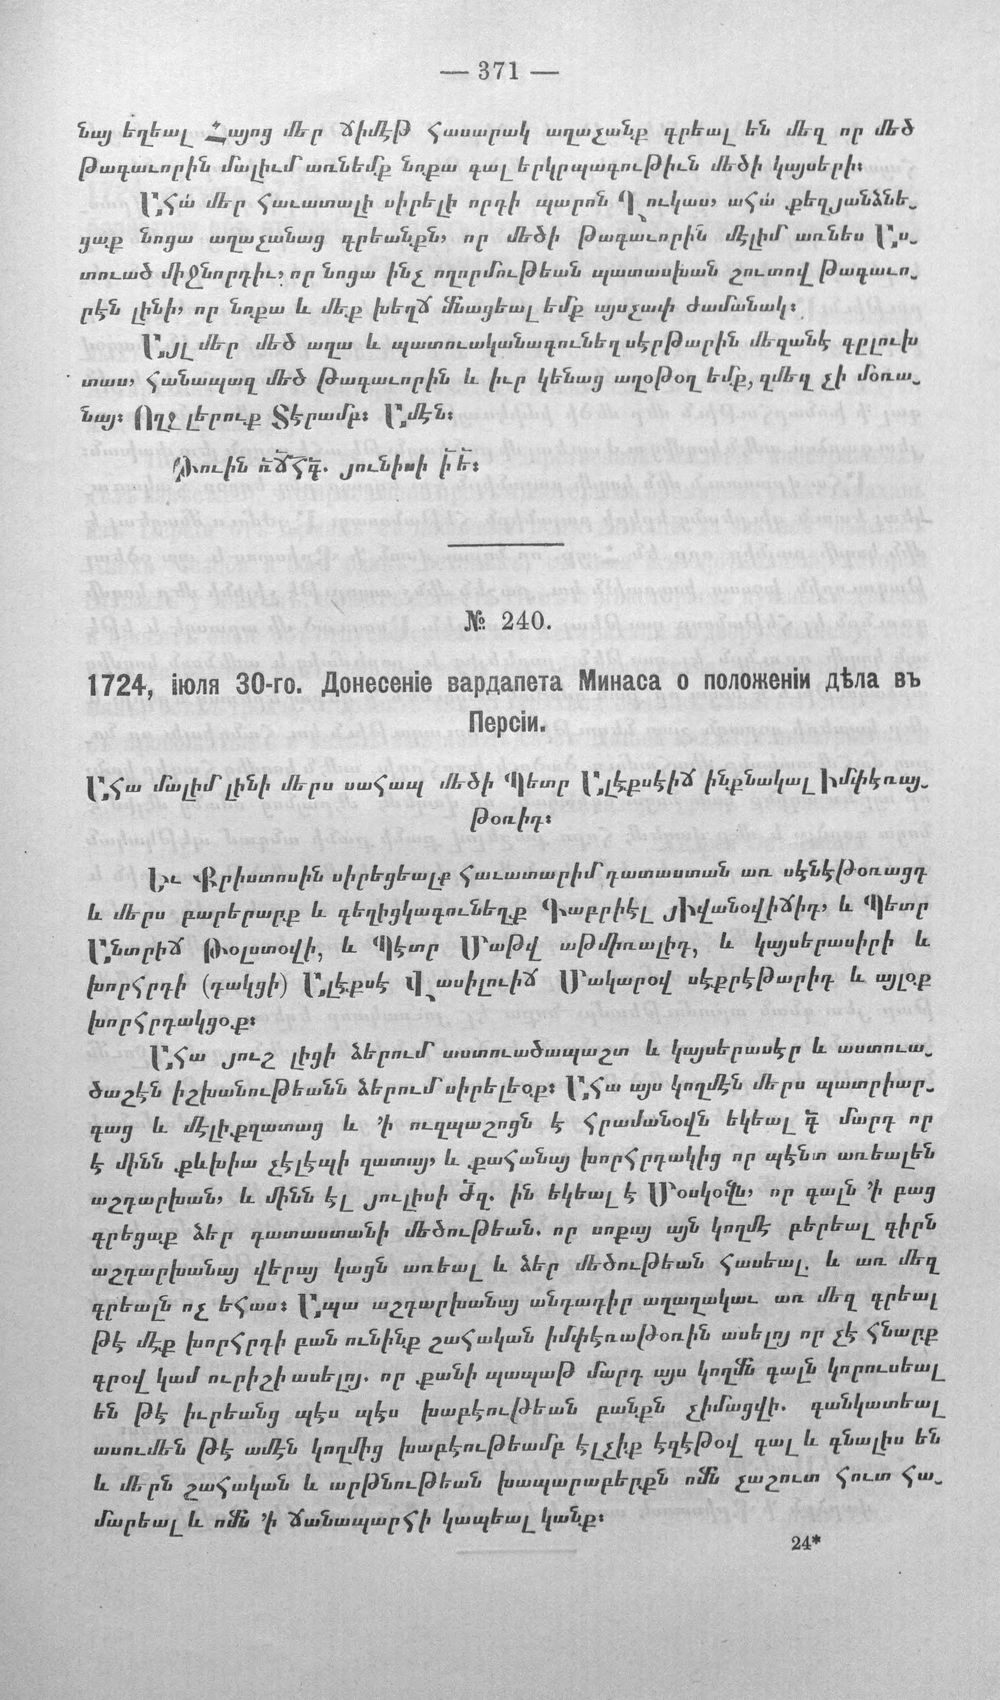 — 371 —
նայ եղեալ Հայոց մեր ճիմէթ հասարակ աղաչանք գրեալ են մեզ որ մեծ
թագաւորին մալիւմ առնեմք նոքա գալ երկրպագութիւն մեծի կայսերի։
Ահա մեր հաւատալի սիրելի որդի պարոն Ղուկաս, ահա քեզյանձնե֊
ցաք նոցա աղաչանաց գրեանքն, որ մեծի թագաւորին մէլիմ առնես Աս֊
տուած միջնորդիւ, որ նոցա ինչ ողորմութեան պատասխան շուտով թագաւո֊
րէն լինի, որ նոքա և մեք խեղճ մնացեալ եմք այսչափ ժամանակ։
Այլ մեր մեծ աղա և պատուականագունեղ սէրթարին մեզանէ գըլուխ
տաս, հանապազ մեծ թագաւորին և իւր կենաց աղօթօղ եմք, զմեզ չի մօռա֊
նայ։ Ողջ լերուք Տէրամբ։ Ամէն։
Թուին ռ̃ճ̃հ̃գ̃. յունիսի ի̃ե̃։
№ 240.
1724, іюля 30-го. Донесеніе вардапета Минаса о положеніи дѣла въ
Персіи.
Ահա մալիմ լինի մերս սահապ մեծի Պետր Ալէքսէիճ ինքնակալ Իմփէռայ֊
թօռիդ։
Եւ Քրիստոսին սիրեցեալք հաւատարիմ դատաստան առ սէնէթօռացդ
և մերս բարերարք և գեղիցկագունեղք Գաբրիէլ յիվանօվիճիդ, և Պետր
Անտրիճ Թօլստօվի, և Պէտր Մաթվ աթմիռալիդ, և կայսերասիրի և
խորհրդի (դակցի) Ալէքսէ Վասիլուիճ Մակարօվ սէքրէթարիդ և այլօք
խորհրդակցօք։
Ահա յուշ լիցի ձերում աստուածապաշտ և կայսերասէր և աստուա֊
ծաշէն իշխանութեանն ձերում սիրելեօք։ Ահա այս կողմէն մերս պատրիար֊
գաց և մէլիքզատաց և ՚ի ուզպաշոցն է հրամանօվն եկեալ գ̃ մարդ որ
է մինն քևխիա չէլէպի զատայ, և քահանայ խորհրդակից որ պէնտ առեալեն
աշդարխան, և մինն էլ յուլիսի ժզ. ին եկեալ է Մօսկօվն, որ գալն ՚ի բաց
գրեցաք ձեր դատաստանի մեծութեան. որ սոքայ այն կողմէ բերեալ գիրն
աշդարխանայ վերայ կացն առեալ և ձեր մեծութեան հասեալ. և առ մեզ
գրեալն ոչ եհաս։ Ապա աշդարխանայ անդադիր աղաղակաւ առ մեզ գրեալ
թէ մէք խորհրդի բան ունինք շահական իմփէռաթօռին ասելոյ որ չէ հնարք
գրօվ կամ ուրիշի ասելոյ. որ քանի պապաթ մարդ այս կողմն գալն կորուսեալ
են թէ իւրեանց պէս պէս խաբէութեան բանքն չիմացվի. գանկատեալ
ասումեն թէ ամէն կողմից խաբէութեամբ էլչիք էղէթօվ գալ և գնալիս են
և մերն շահական և արթնութեան խապարաբերքն ոմն չաշուտ հուտ հա֊
մարեալ և ոմն ՚ի ճանապարհի կապեալ կանք։
24*